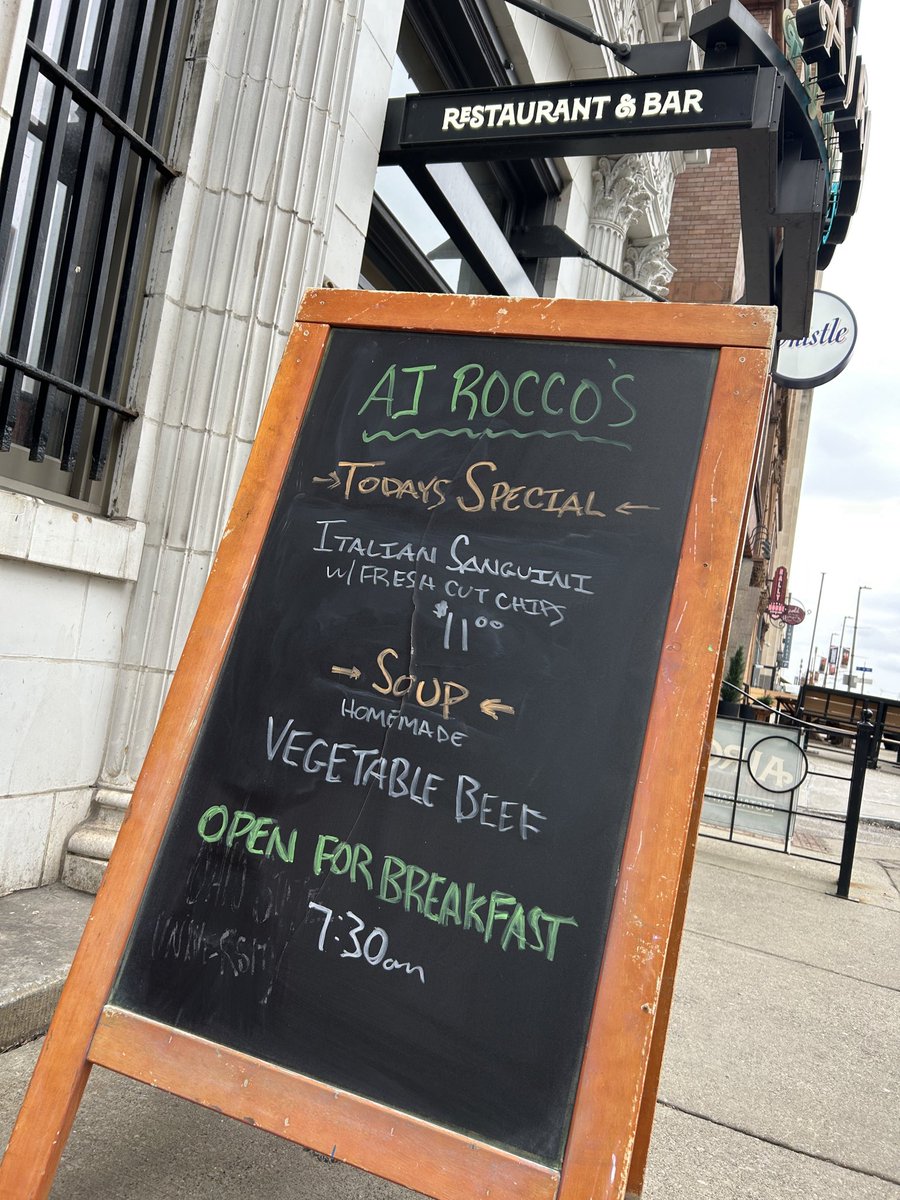 RESTAURANT & BAR
AJ ROCCO'S
→TODAYS SPECIAL←
ITALIAN SANGUINI
w/ FRESH CUT CHIPS
$11.00
→SOUP←
HOMEMADE
VEGETABLE BEEF
OPEN FOR BREAKFAST
7:30am